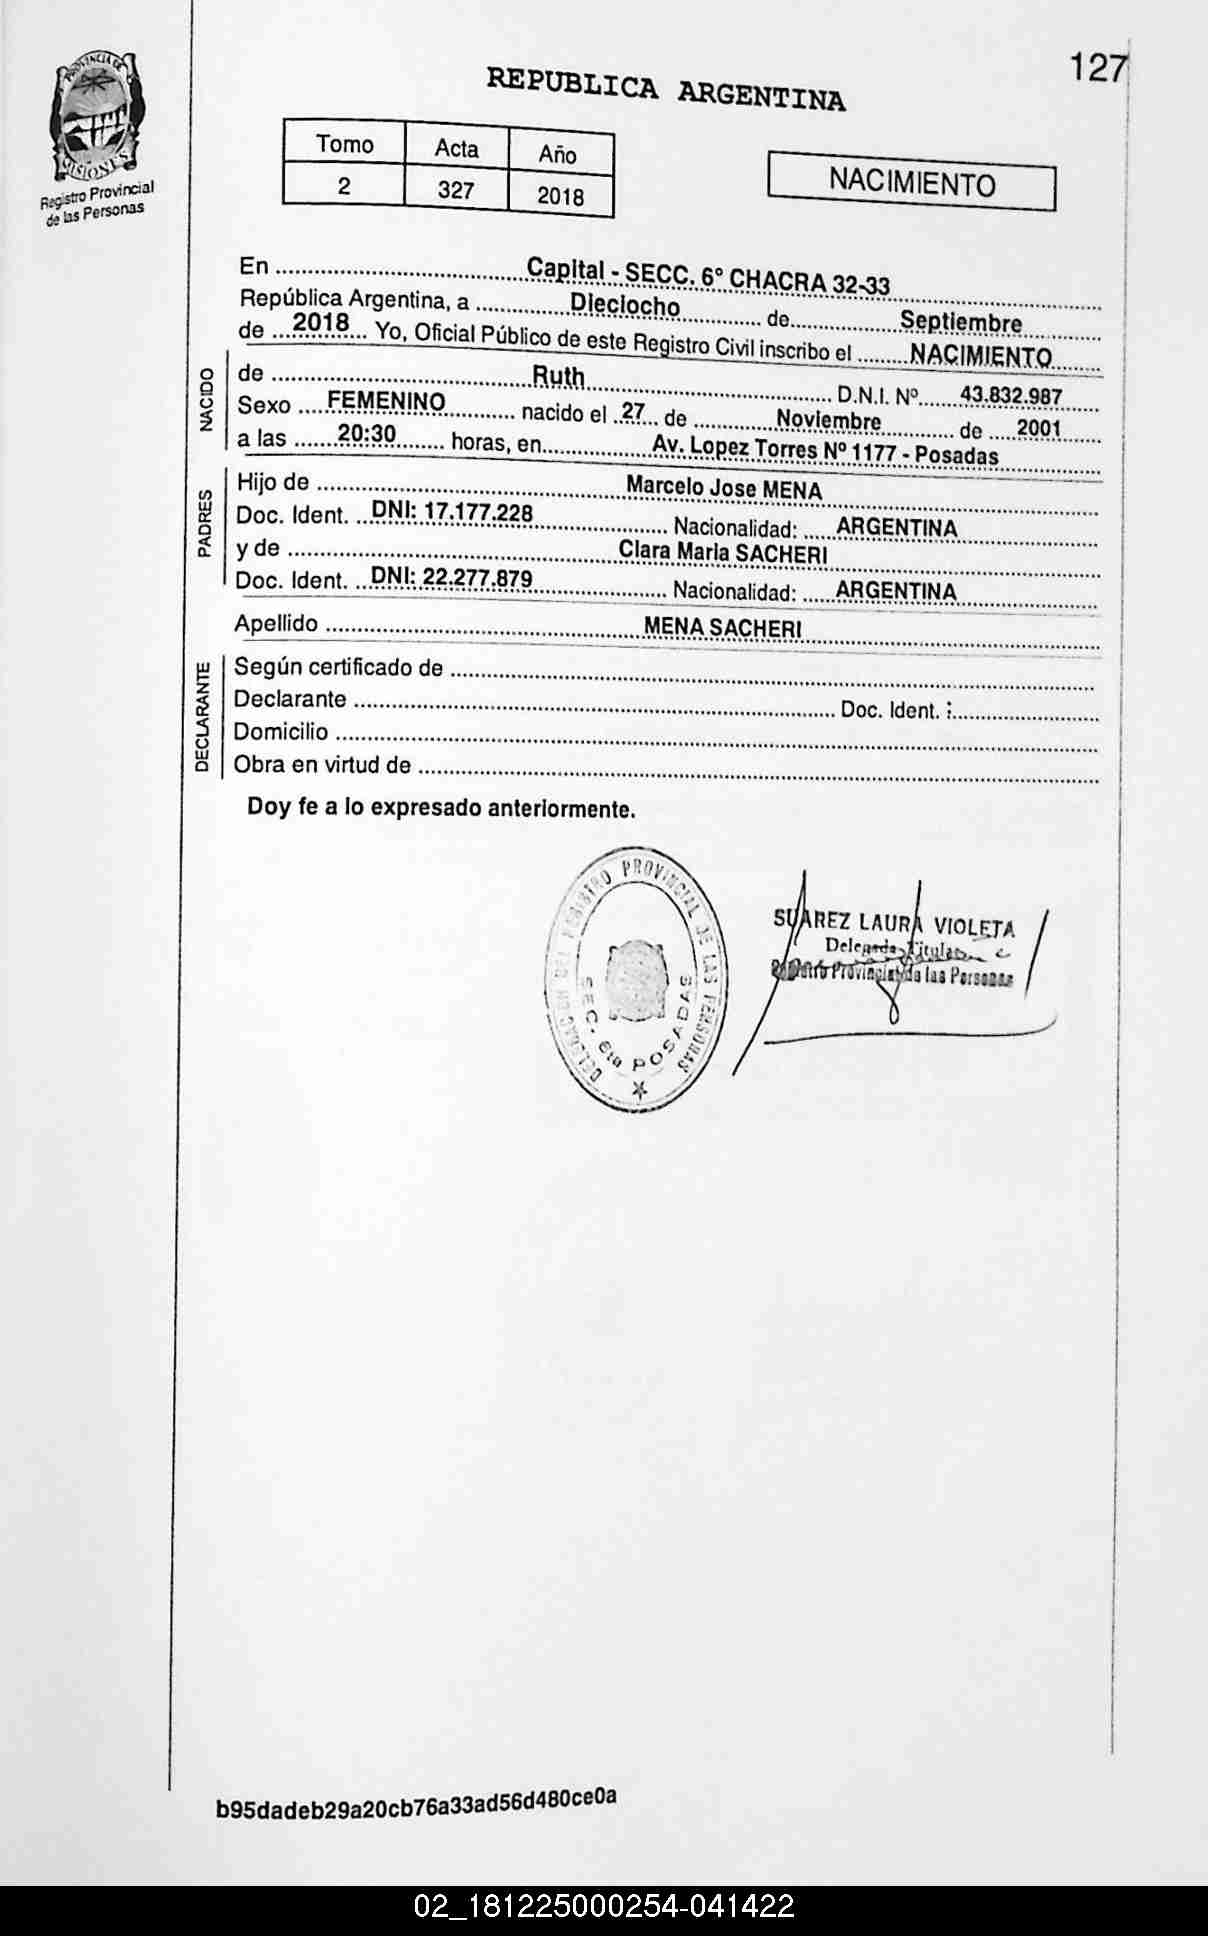 127
REPUBLICA ARGENTINA
PROVINCIA DE
MISIONES
Registro Provincial
de las Personas
Tomo Acta Año
2 327 2018
NACIMIENTO
En ........ Capital - SECC. 6º CHACRA 32-33 ........
República Argentina, a ........ Dieciocho ........ de ........ Septiembre
de ... 2018 ... Yo, Oficial Público de este Registro Civil inscribo el ........ NACIMIENTO ........
NACIDO
de ........ Ruth ........ D.N.I. Nº ...... 43.832.987
Sexo .... FEMENINO ........ nacido el .27... de ........ Noviembre ........ de .... 2001
a las ...... 20:30 ...... horas, en ........ Av. Lopez Torres Nº 1177 - Posadas
PADRES
Hijo de ........ Marcelo Jose MENA
Doc. Ident. .. DNI: 17.177.228 ........ Nacionalidad: ..... ARGENTINA
y de ........ Clara Maria SACHERI
Doc. Ident. .. DNI: 22.277.879 ........ Nacionalidad: ..... ARGENTINA
Apellido ........ MENA SACHERI
DECLARANTE
Según certificado de ........
Declarante ........ Doc. Ident. : ........
Domicilio ........
Obra en virtud de ........
Doy fe a lo expresado anteriormente.
REGISTRO PROVINCIAL DE LAS PERSONAS
SEC. 6ta POSADAS
SUAREZ LAURA VIOLETA
Delegada Titular
Provincial de las Personas
b95dadeb29a20cb76a33ad56d480ce0a
02_181225000254-041422